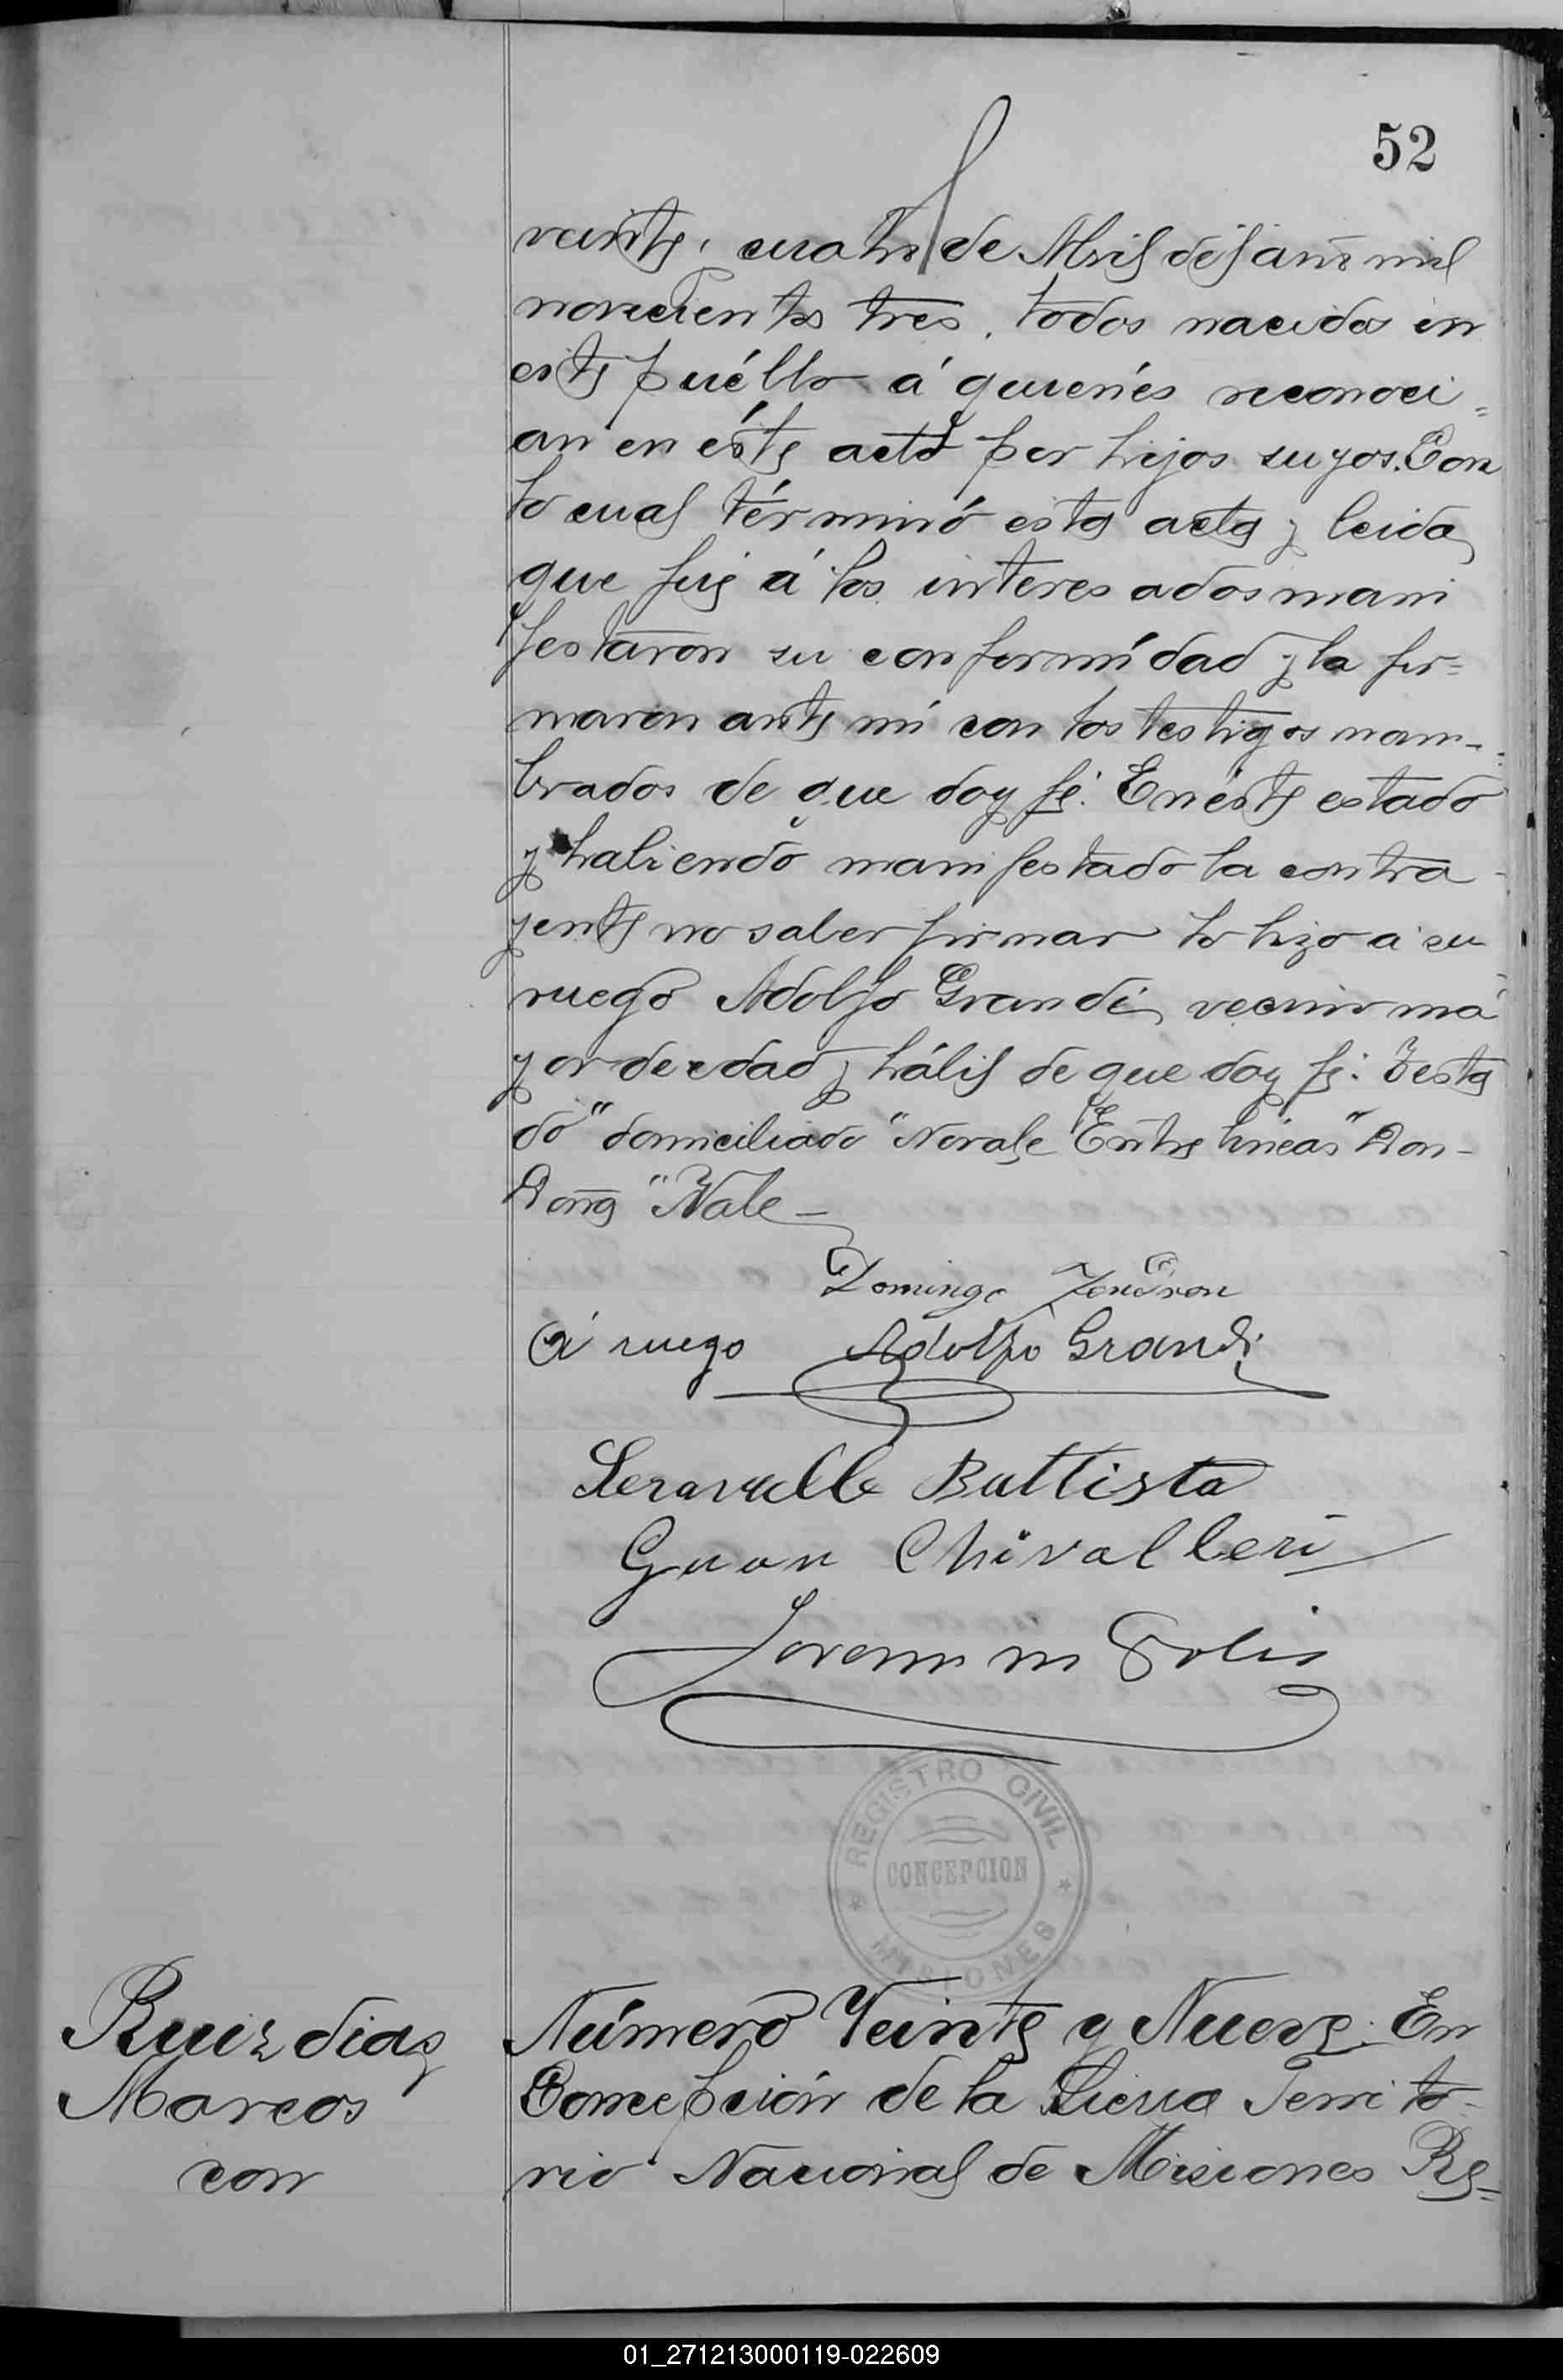 52
veinte, cuatro de Abril del año mil
novecientos tres, todos nacidos en
este puéblo á quienés reconoci=
an en éste acto por hijos suyos. Con
lo cual términó esta acta y leida
que fué á los interesados mani
festaron su conformidad y la fir=
maron ante mi con los testigos nom-
brados de que doy fé. En éste estado
y habiendo manifestado la contra-
yente no saber firmar lo hizo a su
ruego Adolfo Grandi, vecino ma
yor de edad y hábil de que doy fé. Testa
do "domiciliado" No vale "Entre lineas" Don-
Doña "Vale-
Domingo
á ruego Adolfo Grandi
Seravalle Battista
Guan Chivalleri
Solis
REGISTRO CIVIL
CONCEPCION
MISIONES
Ruiz dias
Marcos
con
Número Veinte y Nueve. En
Concepción de la Sierra Territo-
rio Nacional de Misiones Re=
01_271213000119-022609